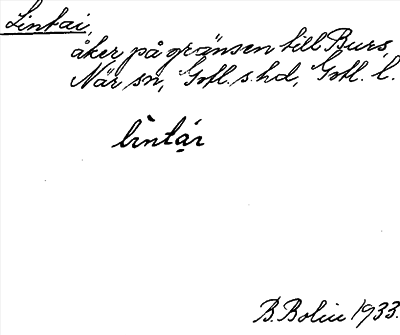 Lintai,
åker på gränsen till Burs,
När sn, Gotl. s. hd, Gotl. l.
B. Bolin 1933.